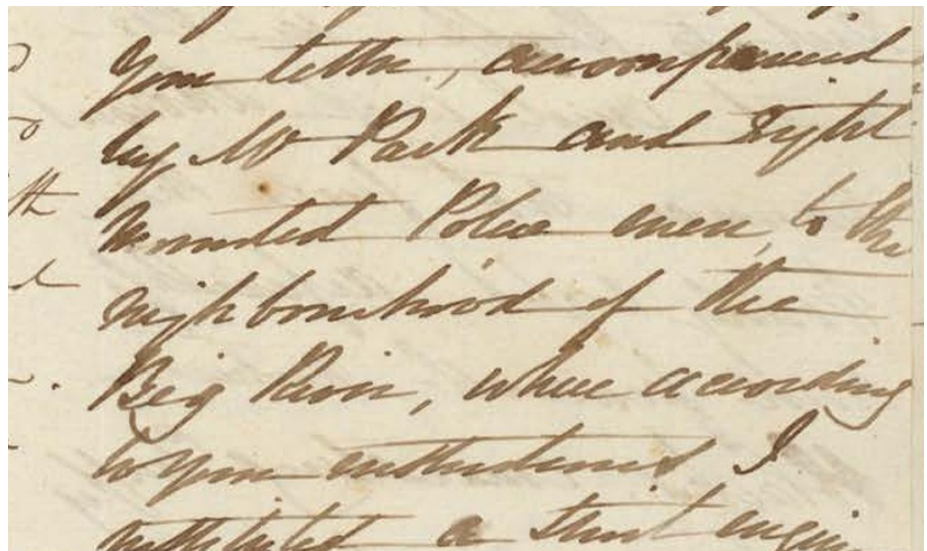 your letter, accompanied
by Mr Park and Eight
mounted Police men, to the
neighbourhood of the
Big River, where according
to your I
instituted a strict